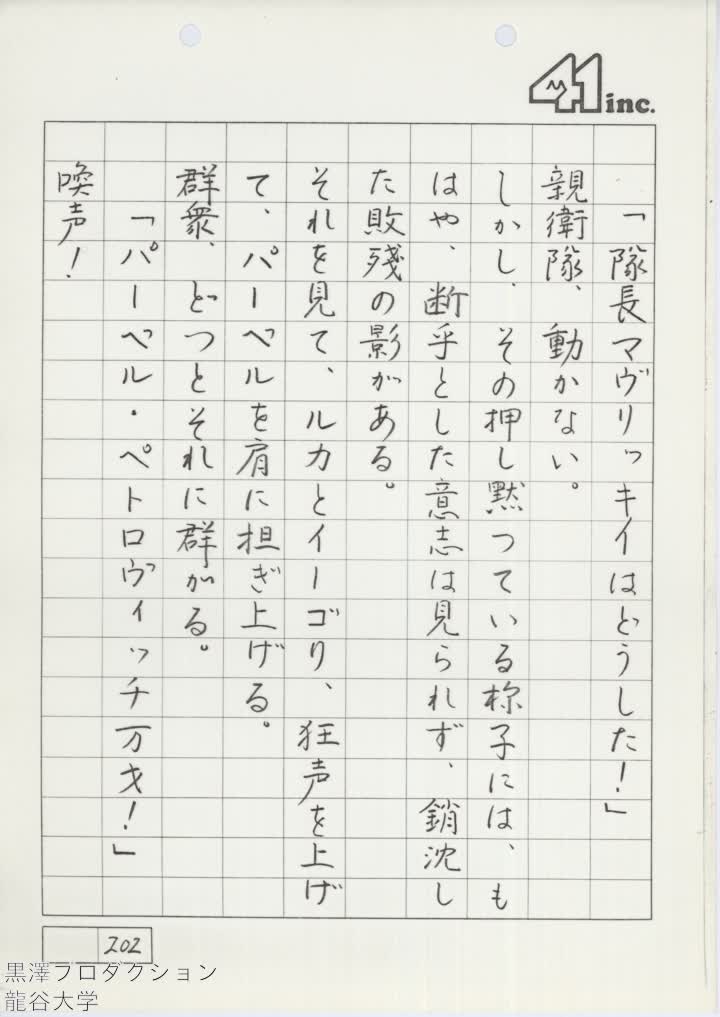 41 inc.
「隊長マヴリッキイはどうした!」
親衛隊、動かない。
しかし、その押し黙つている様子には、も
はや、断乎とした意志は見られず、銷沈し
た敗残の影がある。
それを見て、ルカとイーゴリ、狂声を上げ
て、パーベルを肩に担ぎ上げる。
群衆、どつとそれに群がる。
「パーベル・ペトロヴィッチ万才!」
喚声!
202
黒澤プロダクション
龍谷大学